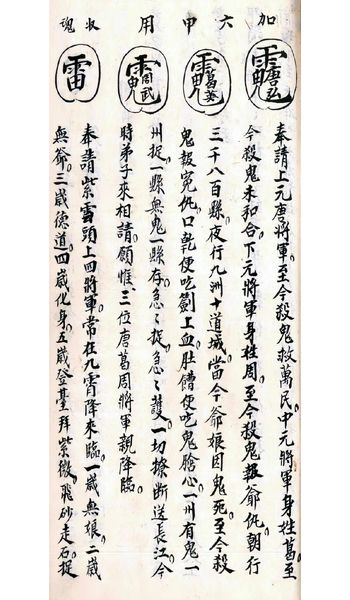 加六甲用收魂
唐弘
葛英
周武
雷
奉請上元唐將軍至今殺鬼救萬民中元將軍身姓葛至
今殺鬼未和合下元將軍身姓周至今殺鬼報爺仇朝行
三千八百縣夜行九洲十道城當今爺娘因鬼死至今殺
鬼報冤仇口乾便吃劍上血肚饑便吃鬼膽心一州有鬼一
州捉一縣無鬼一縣存急〻捉急〻護一切擦斷送長江今
時弟子來相請願惟三位唐葛周將軍親降臨
奉請紫雲頭上四將軍常在九霄降來臨一歲無娘二歲
無爺三歲德道四歲化身五歲登臺拜紫微飛砂走石捉